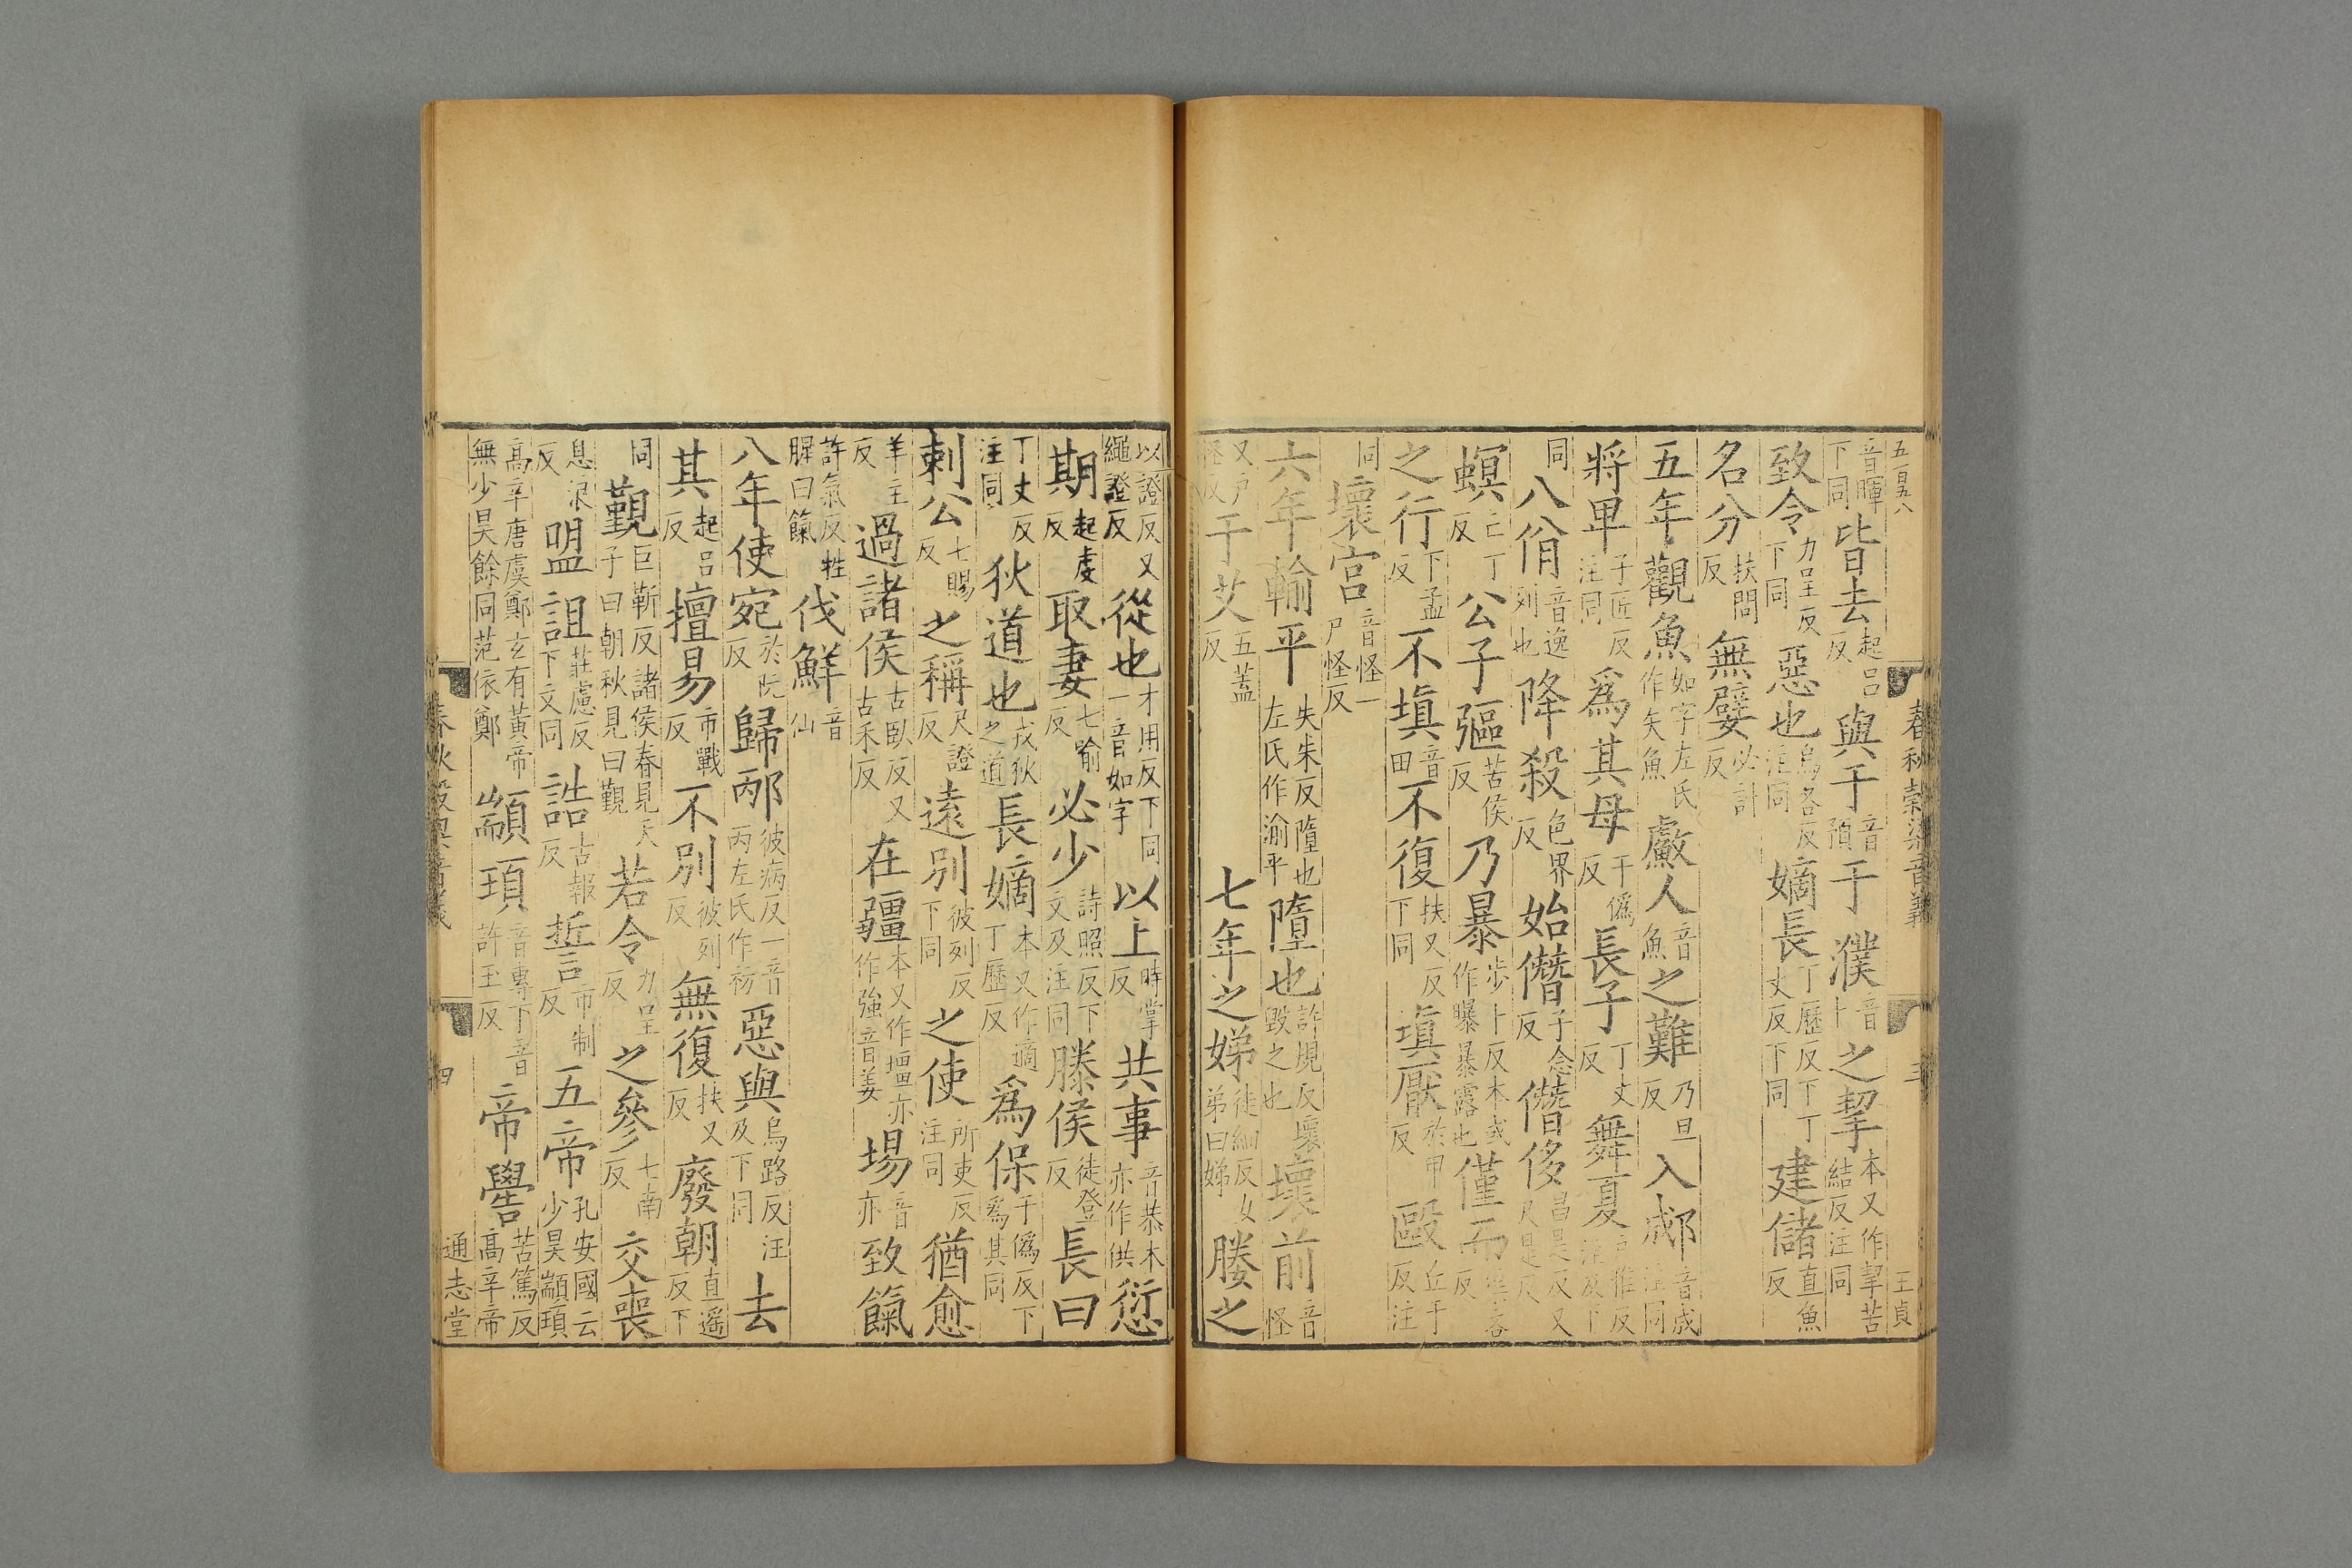 五百五八
春秋穀梁音義
三
王貞
音暉下同皆去起呂反與于音預于濮音卜之挈本又作挈苦結反注同
致令力呈反下同惡也烏各反注同嫡長丁歷反下丁丈反下同建儲直魚反
名分扶問反無嬖必計反
五年觀魚如字左氏作矢魚䱷人音魚之難乃旦反入郕音成注同
將卑子匠反注同爲其母于僞反長子丁丈反舞夏戶雅反注及下
同八佾音逸列也降殺色界反始僭子念反僭侈昌是反又尺是反
螟亡丁反公子彄苦侯反乃暴步卜反本或作曝暴露也僅而
之行下孟反不塡音田不復扶又反下同塡厭於甲反毆丘于反注
同壞宮音怪一尸怪反
六年輸平失朱反隳也左氏作渝平隳也許規反壞毀之也壞前音怪
又戶怪反于艾五蓋反七年之娣徒細反女弟曰娣媵之
以證反又繩證反從也才用反下同一音如字以上時掌反共事音恭本亦作供愆
期起虔反取妻七喻反必少詩照反下文及注同滕侯徒登反長曰
丁丈反注同狄道也戎狄之道長嫡本又作適丁歷反爲保于僞反下爲其同
刺公七賜反之稱尺證反遠別彼列反下同之使所吏反注同猶愈
羊主反過諸侯古臥反又古禾反在疆本又作壃亦作強音姜場音亦致餼
許氣反牲腥曰餼伐鮮音仙
八年使宛於阮反歸邴彼病反一音丙左氏作祊惡與烏路反注及下同去
其起呂反擅易市戰反不別彼列反無復扶又反廢朝直遙反下
同覲巨靳反諸侯春見天子曰朝秋見曰覲若令力呈反之參七南反交喪
息浪反盟詛莊慮反下文同誥古報反誓市制反五帝孔安國云少昊顓頊
高辛唐虞鄭玄有黃帝無少昊餘同范依鄭顓頊音專下音許玉反帝嚳苦篤反高辛帝
春秋穀梁音義
四
通志堂